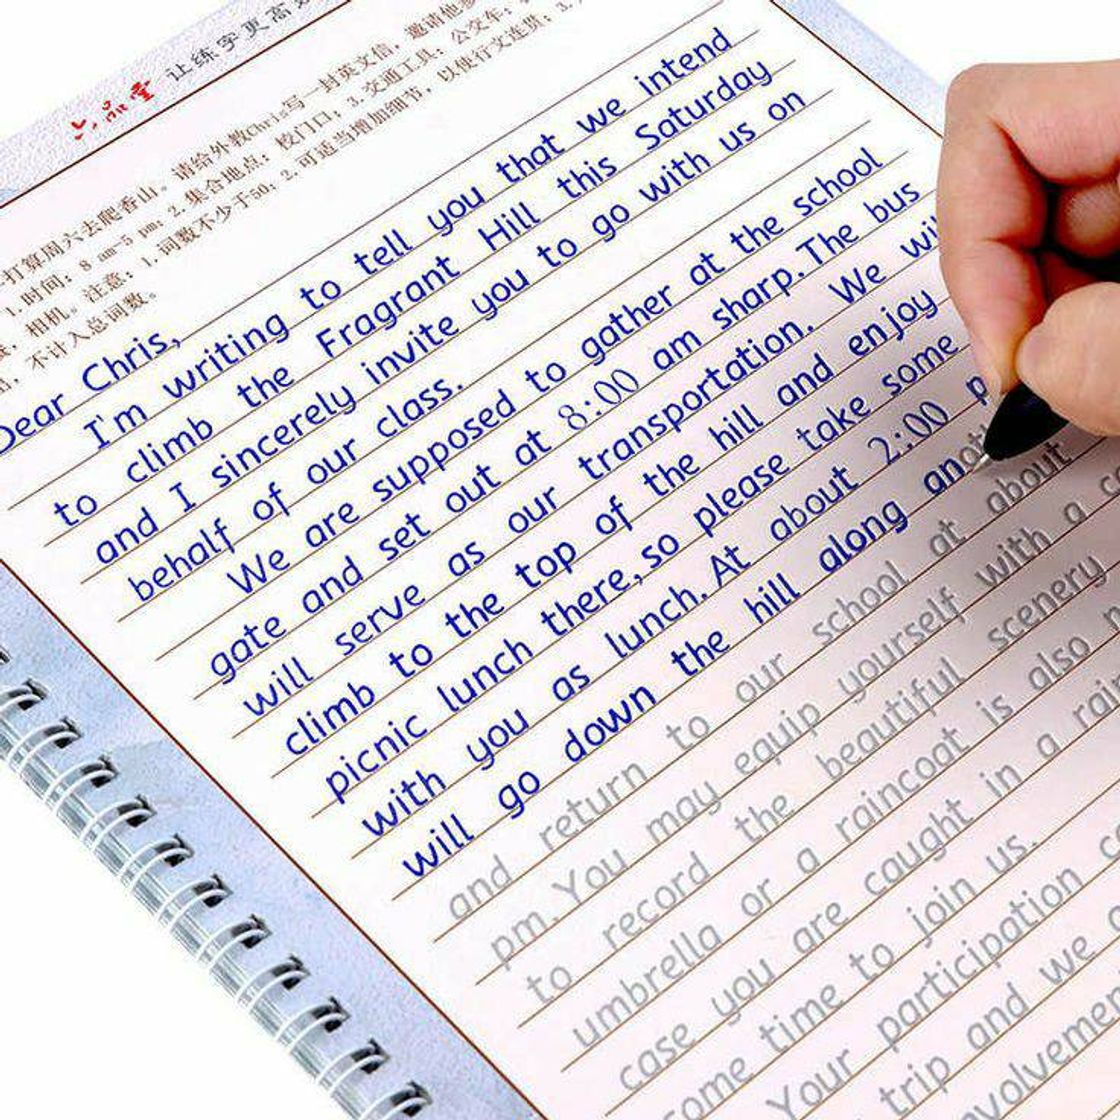 六品堂 让练字更高效
打算周六去爬香山。请给外教Chris写一封英文信，邀请他参
1. 时间：8 am-5 pm; 2. 集合地点：校门口；3. 交通工具：公交车；
相机。注意：1. 词数不少于50；2. 可适当增加细节，以使行文连贯；3.
不计入总词数。
Dear Chris,
I'm writing to tell you that we intend
to climb the Fragrant Hill this Saturday
and I sincerely invite you to go with us on
behalf of our class.
We are supposed to gather at the school
gate and set out at 8:00 am sharp. The bus
will serve as our transportation. We
climb to the top of the hill and enjoy
picnic lunch there, so please take some
with you as lunch. At about 2:00
will go down the hill along
and return to our school at about
pm. You may equip yourself with a
to record the beautiful scenery
umbrella or a raincoat is also
case you are caught in a
some time to join us.
Your participation
trip and we